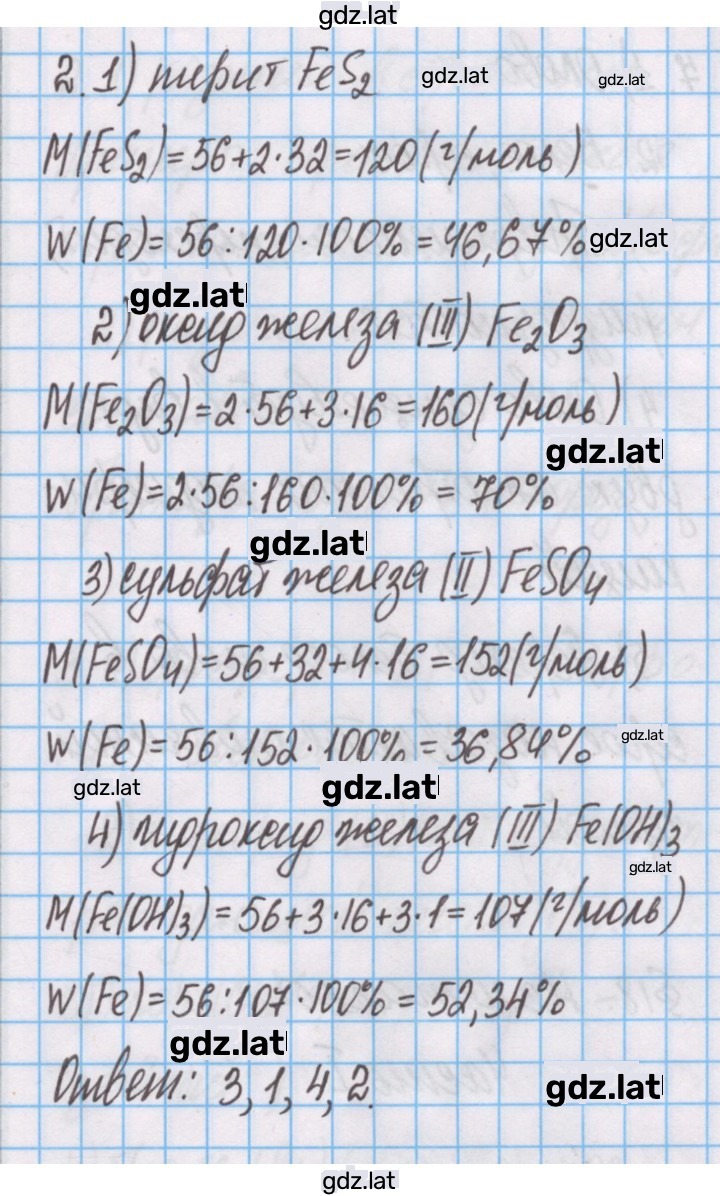 gdz.lat
2. 1) пирит FeS₂ gdz.lat gdz.lat
M(FeS₂)=56+2·32=120(г/моль)
W(Fe)=56:120·100%=46,67% gdz.lat
gdz.lat
2) оксид железа (III) Fe₂O₃
M(Fe₂O₃)=2·56+3·16=160(г/моль)
gdz.lat
W(Fe)=2·56:160·100%=70%
gdz.lat
3) сульфат железа (II) FeSO₄
M(FeSO₄)=56+32+4·16=152(г/моль)
W(Fe)=56:152·100%=36,84% gdz.lat
gdz.lat gdz.lat
4) гидроксид железа (III) Fe(OH)₃
gdz.lat
M(Fe(OH)₃)=56+3·16+3·1=107(г/моль)
W(Fe)=56:107·100%=52,34%
gdz.lat
Ответ: 3, 1, 4, 2. gdz.lat
gdz.lat